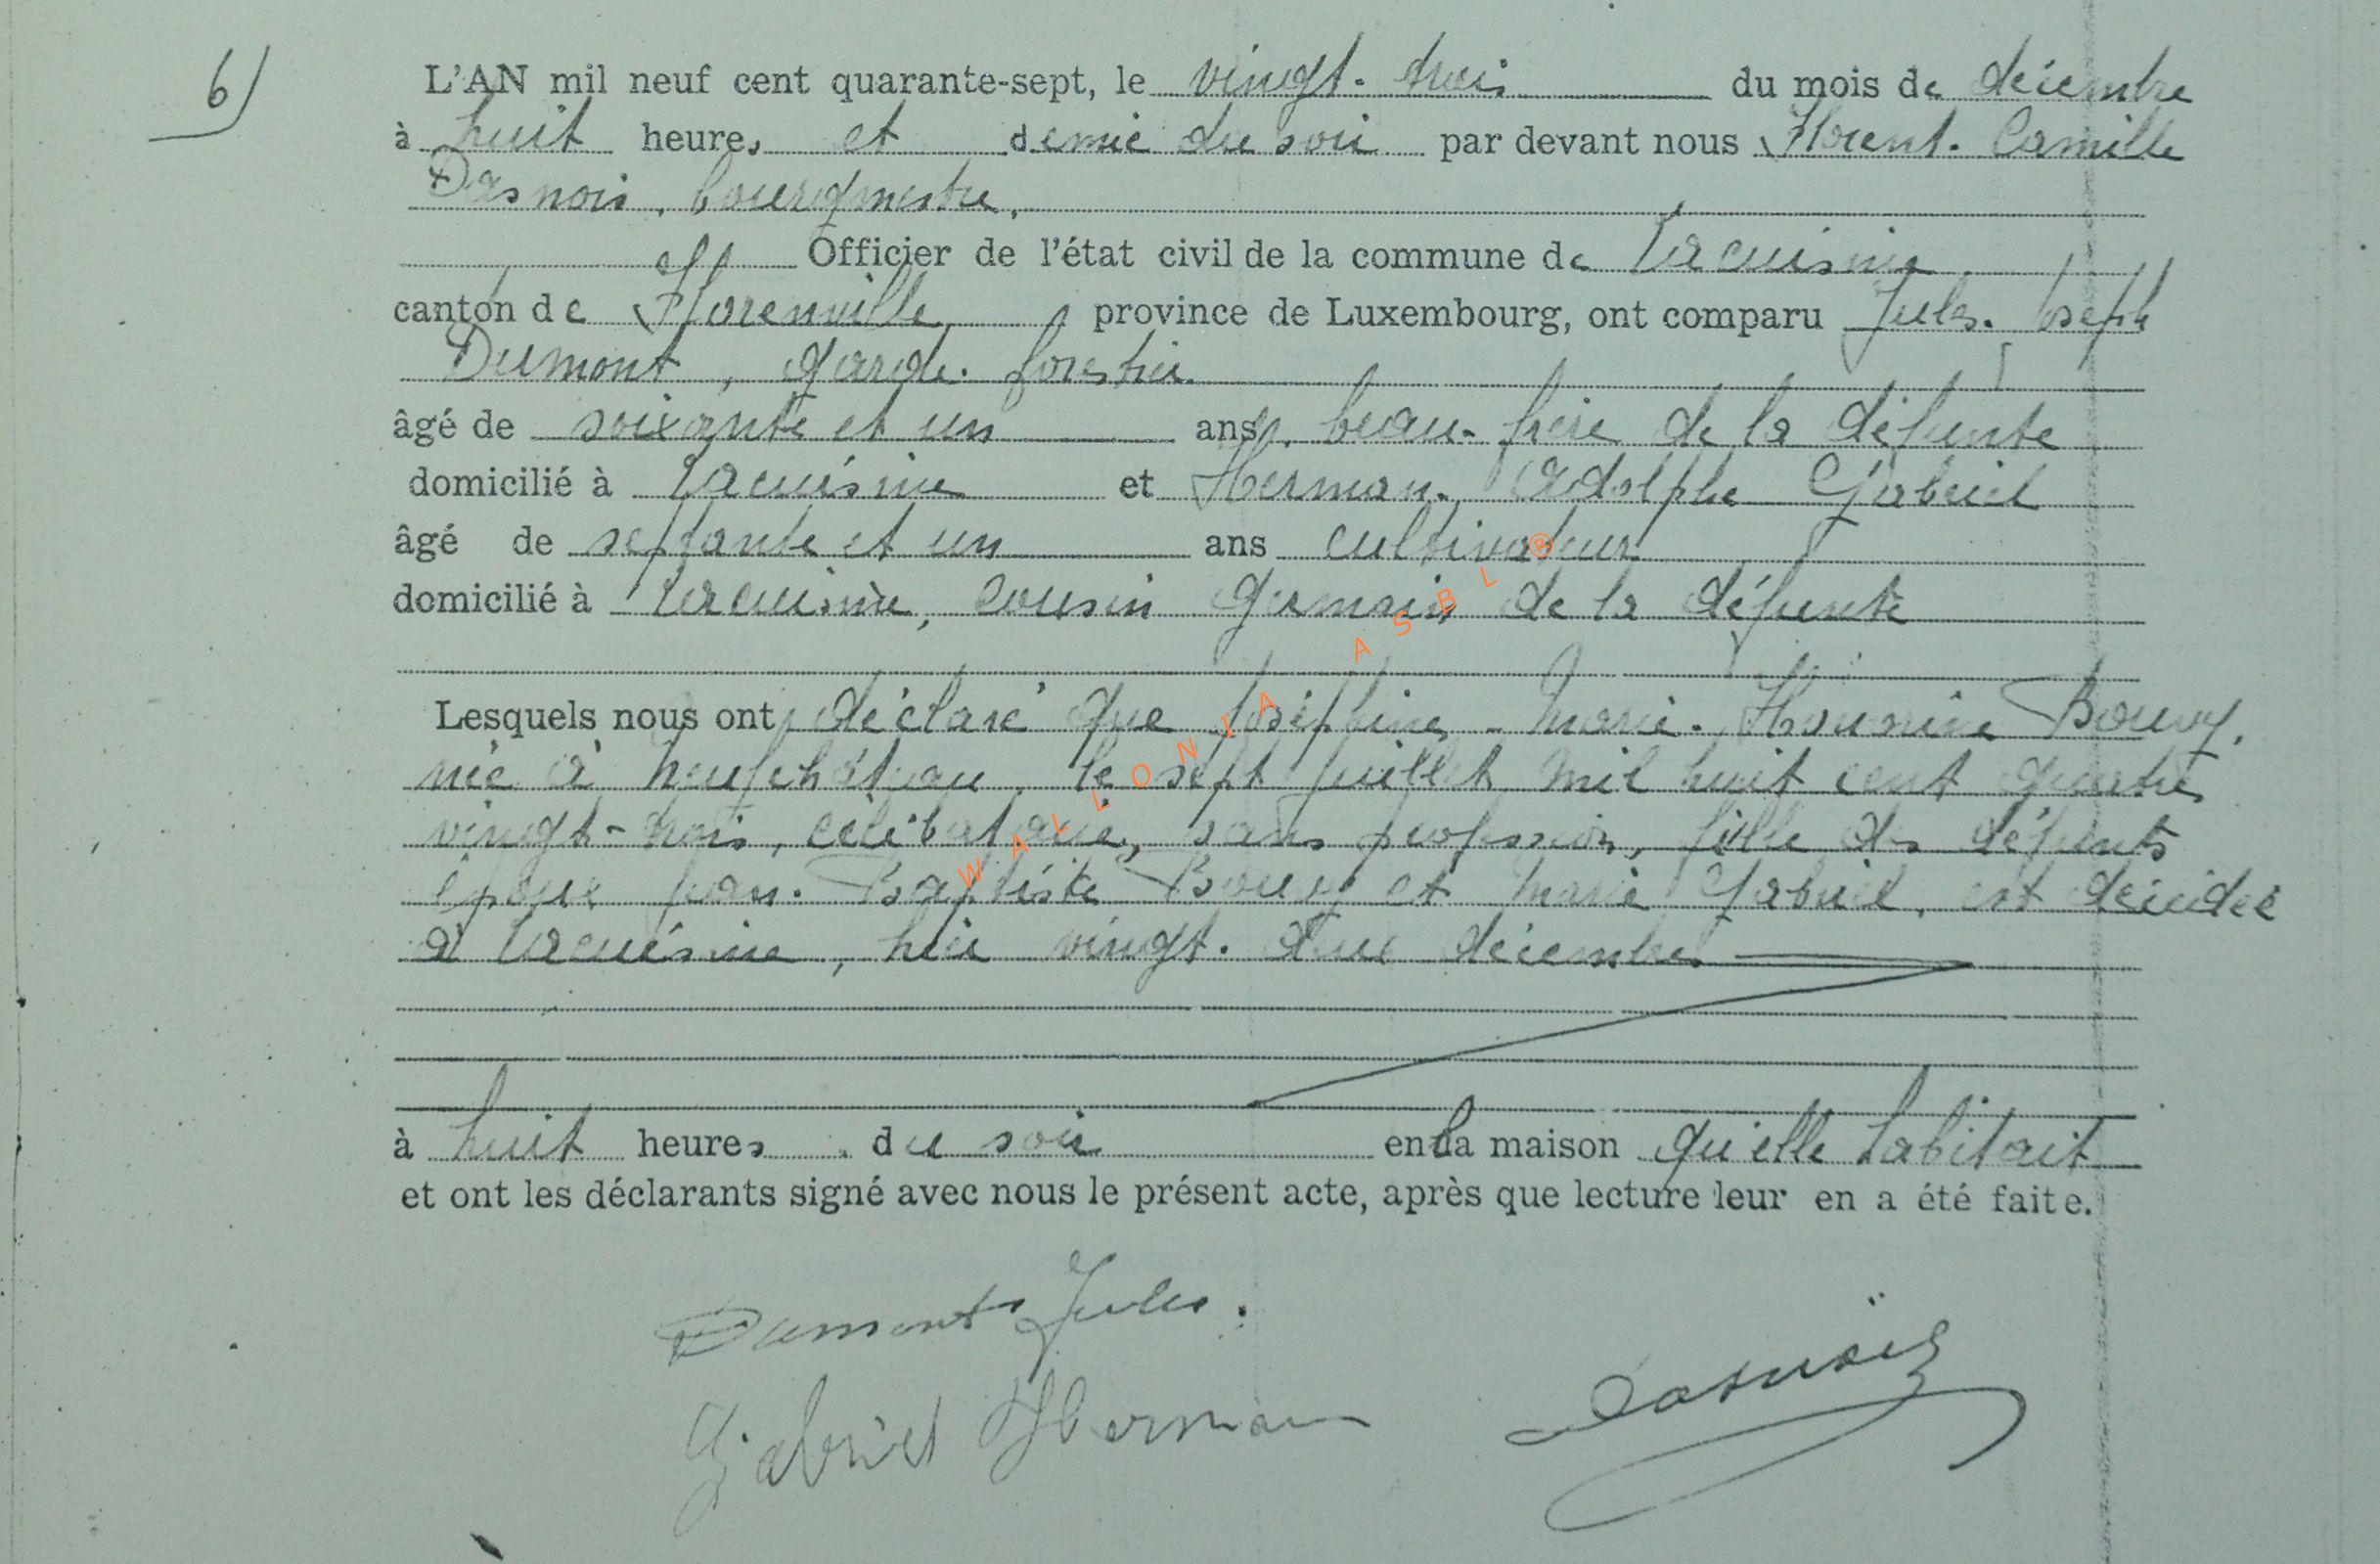 6)
L'AN mil neuf cent quarante-sept, le vingt-trois du mois de décembre
à huit heures et demie du soir par devant nous Florent-Camille
Dasnois, bourgmestre,
Officier de l'état civil de la commune de Lacuisine
canton de Florenville province de Luxembourg, ont comparu Jules-Joseph
Dumont, garde-forestier
âgé de soixante et un ans, beau-frère de la défunte
domicilié à Lacuisine et Herman-Adolphe Gabriel
âgé de septante et un ans cultivateur
domicilié à Lacuisine, cousin germain de la défunte
Lesquels nous ont déclaré que Joséphine-Marie-Honorine Bouvy,
née à Neufchâteau, le sept juillet mil huit cent quatre
vingt-trois, célibataire, sans profession, fille des défunts
époux Jean-Baptiste Bouvy et Marie Gabriel, est décédée
à Lacuisine, hier vingt-deux décembre
à huit heures du soir en la maison qu'elle habitait
et ont les déclarants signé avec nous le présent acte, après que lecture leur en a été faite.
Dumont Jules.
Gabriel Herman
Dasnoïs
WALLONIA ASBL ®